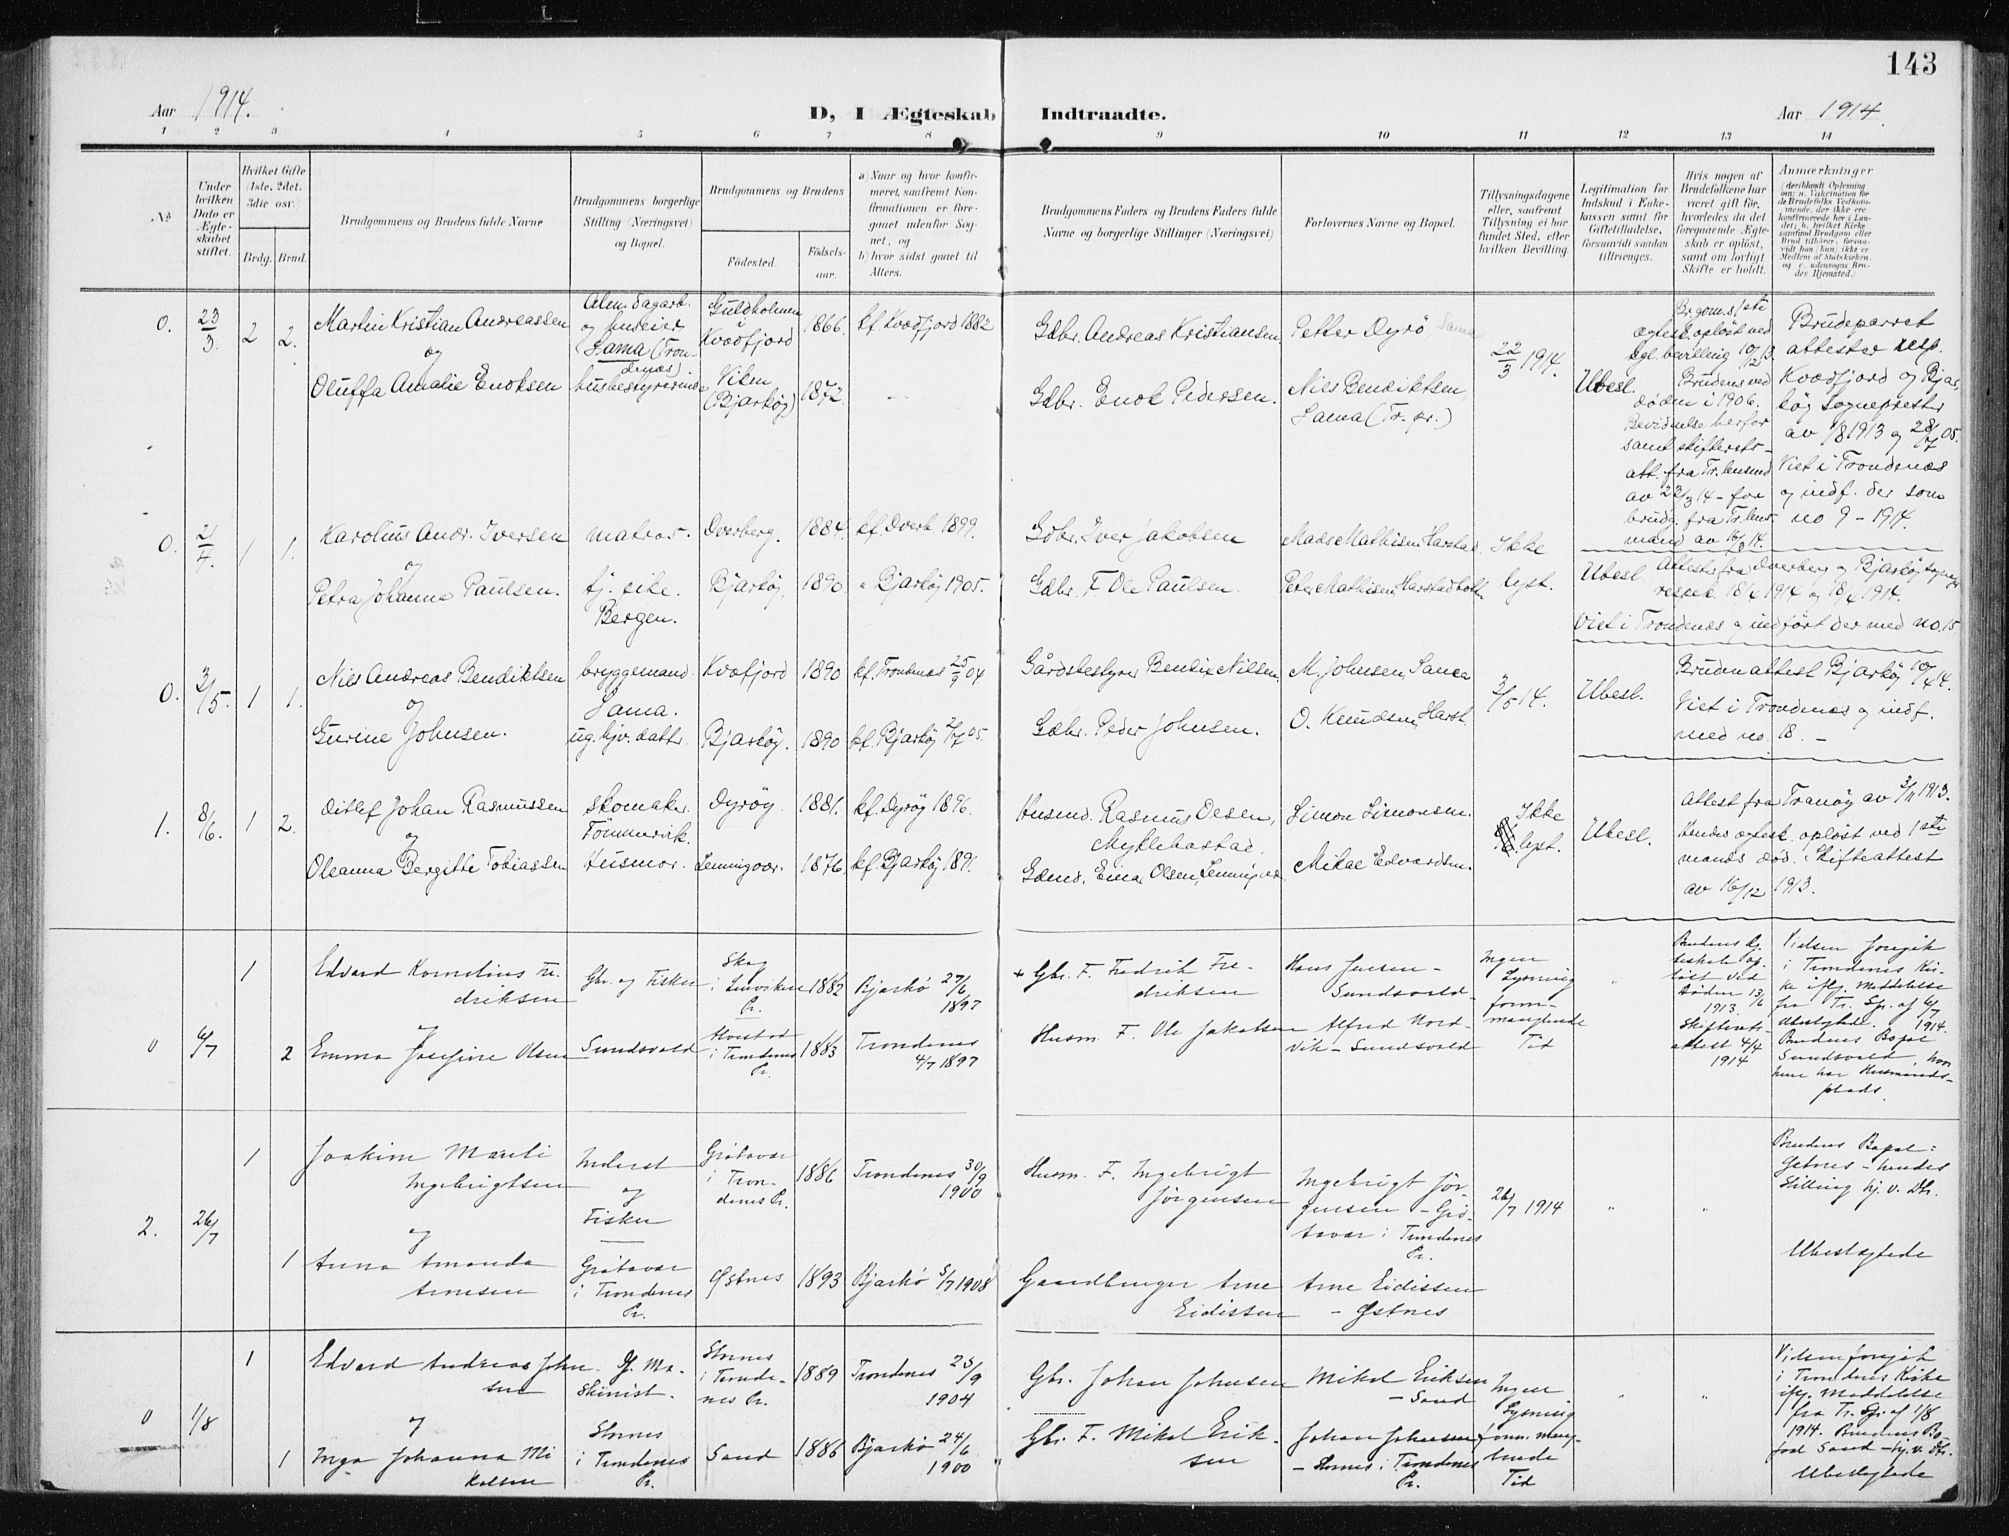 143
Aar 1914.
D, I Ægteskab Indtraadte.
Aar 1914.
1 2 3 4 5 6 7 8 9 10 11 12 13 14
No
Under hvilken Dato er Ægteskabet stiftet.
Hvilket Gifte (1ste, 2det, 3die osv.)
Brdg. Brud.
Brudgommens og Brudens fulde Navne
Brudgommens borgerlige Stilling (Næringsvei) og Bopæl.
Brudgommens og Brudens
Fødested.
Fødselsaar.
a) Naar og hvor konfirmeret, saafremt Konfirmationen er foregaaet udenfor Sognet, og
b) hvor sidst gaaet til Alters.
Brudgommens Faders og Brudens Faders fulde Navne og borgerlige Stillinger (Næringsvei)
Forlovernes Navne og Bopæl.
Tillysningsdagene eller, saafremt Tillysning ei har fundet Sted, efter hvilken Bevilling.
Legitimation for Indskud i Enkekassen samt for Giftetilladelse, forsaavidt saadan tiltrænges.
Hvis nogen af Brudefolkene har været gift før, hvorledes da det foregaaende Ægteskab er opløst, samt om lovligt Skifte er holdt.
Anmærkninger
0. 23/3 2 2. Martin Kristian Andreassen
og
Oluffa Amalie Enoksen
Alm. dagarb. og huseier
Sama (Trondenæs)
husbestyrerinde
Guldholmen i Kvædfjord 1866. kf. Kvædfjord 1882
Viken (Bjarkøy) 1872.
Gdbr. Andreas Kristiansen
Gdbr. Enok Pedersen.
Petter Dyrø Sama
Nils Bendiktsen, Sama (Tr. pr.)
22/3 1914.
Ubesl.
Brgom.s 1ste egtesk. opløst ved kgl. bevilling 10/12 13.
Brudens ved døden i 1906.
Bevidnelse herfor samt skifterets-att. fra Tr. lensmd
Brudeparret attester resp. Kvædfjord og Bjarkøy Sogneprester
Viet i Trondenæs og indf. der som no 9 – 1914.
0. 21/4. 1 1. Karolius Andr. Iversen
og
Petra Johanna Paulsen.
matros.
tj. pike. Bergen.
Dverberg. 1884. kf. Dverb. 1899.
Bjarkøy 1890 " Bjarkøy 1905.
Gdbr. Iver Jakobsen
Gdbr. F. Ole Paulsen.
Mads Mathisen, Harstad
Peter Mathisen, Harstadbotn
Ikke lyst.
Ubesl.
Attester fra Dverberg og Bjarkøy
Viet i Trondenæs og indført der med no. 15
0. 3/5. 1 1. Nils Andreas Bendiktsen
og
Gurine Johnsen.
bryggemand Sama.
ug. hjv. dattr.
Kvæfjord 1890 kf. Trondenæs 25/9 04
Bjarkøy. 1890 kf. Bjarkøy 2/7 05.
Gårdsbestyrer Bendix Nilsen
Gdbr. Peder Johnsen.
M. Johnsen, Sama
O. Knudsen, Harst.
3/5 14.
Ubesl.
Bruden attest Bjarkøy 10/4 14.
Viet i Trondenæs og indf. med no. 18. –
1. 8/6. 1 2. Ditlef Johan Rasmussen
og
Oleanna Bergitte Tobiassen
Skomaker Tømmervik.
Husmor.
Dyrøy. 1881. kf. Dyrøy 1896.
Lemmingvær. 1876. kf. Bjarkøy 1891.
Husmd. Rasmus Olesen, Myklebostad.
Gdmd. Einar Olsen, Lemmingvær.
Simon Simonsen.
Mikal Edvardsen.
Ikke lyst.
Ubesl.
Attest fra Tranøy av 3/11 1913.
Hendes egtesk. opløst ved 1ste mands død. Skifteattest av 16/12 1913.
0 6/7 1 2 Edvard Kornelius Fredriksen
og
Emma Josefine Olsen
Gbr. og Fisker
Sundsvold
Skog i Lenviken Pr. 1882 Bjarkø 27/6 1897
i Trondenes Pr. 1883 Trondenes 4/7 1897
+ Gbr. F. Fredrik Fredriksen
Husm. F. Ole Jakobsen
Hans Jensen – Sundsvold –
Alfred Nordvik – Sundsvold
Ingen Lysning form. manglende Tid
Brudens Egteskab opløst ved Døden 13/6 1913.
Skifteretsattest 4/4 1914
Vielsen foregik i Trondenes Kirke iflg. Meddelelse fra Tr. Sp. af 6/7 1914.
Ubeslægtede.
Brudens Bopæl Sundsvold, hvor hun har Husmandsplads.
2. 26/7 1 1 Joakim Mareli Ingebrigtsen
og
Anna Amanda Arnesen
Inderst og Fisker
Grøtavær i Trondenes Pr.
Grøtavær i Trondenes Pr. 1886 Trondenes 30/9 1900
Østnes 1893 Bjarkø 5/7 1908
Husm. F. Ingebrigt Jørgensen
Gaardbruger Arne Eidissen
Ingebrigt Jørgensen – Grøtavær i Trondenes Pr.
Arne Eidissen – Østnes
26/7 1914
" "
Brudens Bopæl: Østnes – hendes Stilling hj. v. Dtr.
Ubeslægtede
0 1/8 1 1 Edvard Andreas Johnsen
og
Inga Johanna Mikalsen
Maskinist.
Stornes i Trondenes Pr.
Stornes i Trondenes Pr. 1889 Trondenes 23/9 1904
Sand 1886 Bjarkø 24/6 1900
Gbr. Johan Johnsen
Gbr. F. Mikal Eriksen
Mikal Eriksen – Sand
Johan Johnsen – Stornes i Trondenes Pr.
Ingen Lysning form. manglende Tid
" "
Vielsen foregik i Trondenes Kirke iflg. Meddelelse fra Tr. Sp. af 1/8 1914. Brudens Bopæl Sand – hj. v. Dtr.
Ubeslægtede